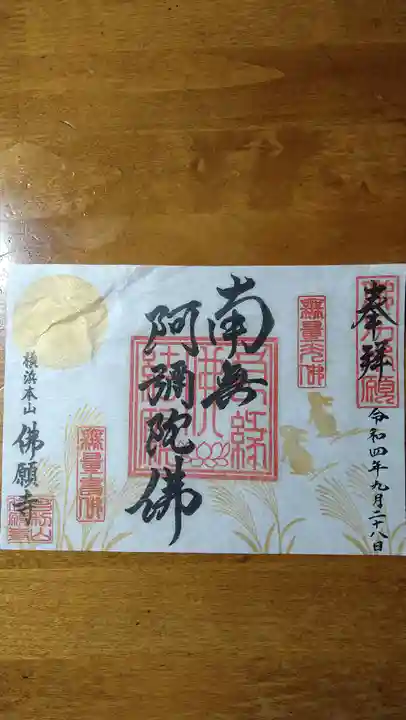 奉拝
令和四年九月二十八日
南無
阿彌陀佛
無量光佛
無量壽佛
横浜本山
佛願寺